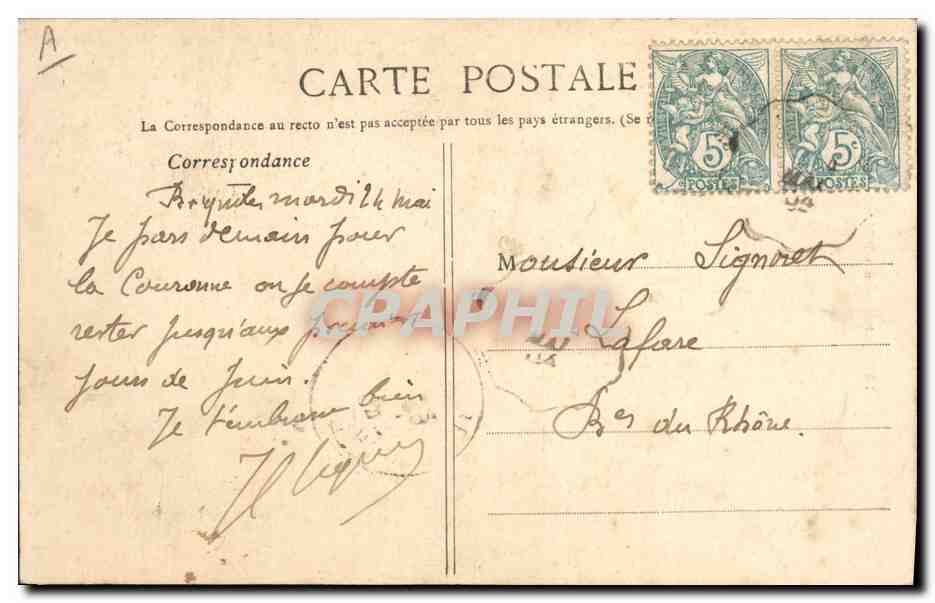 A
CARTE POSTALE
La Correspondance au recto n'est pas acceptée par tous les pays étrangers. (Se r
Correspondance
mardi 24 mai
Je pars demain pour
la Couronne ou je compte
rester jusqu'aux premiers
jours de Juin.
Je t'embrasse bien
5c
POSTES
5c
POSTES
MAI
04
Monsieur Signoret
Lafare
Bes du Rhône.
MAI
04
CPAPHIL